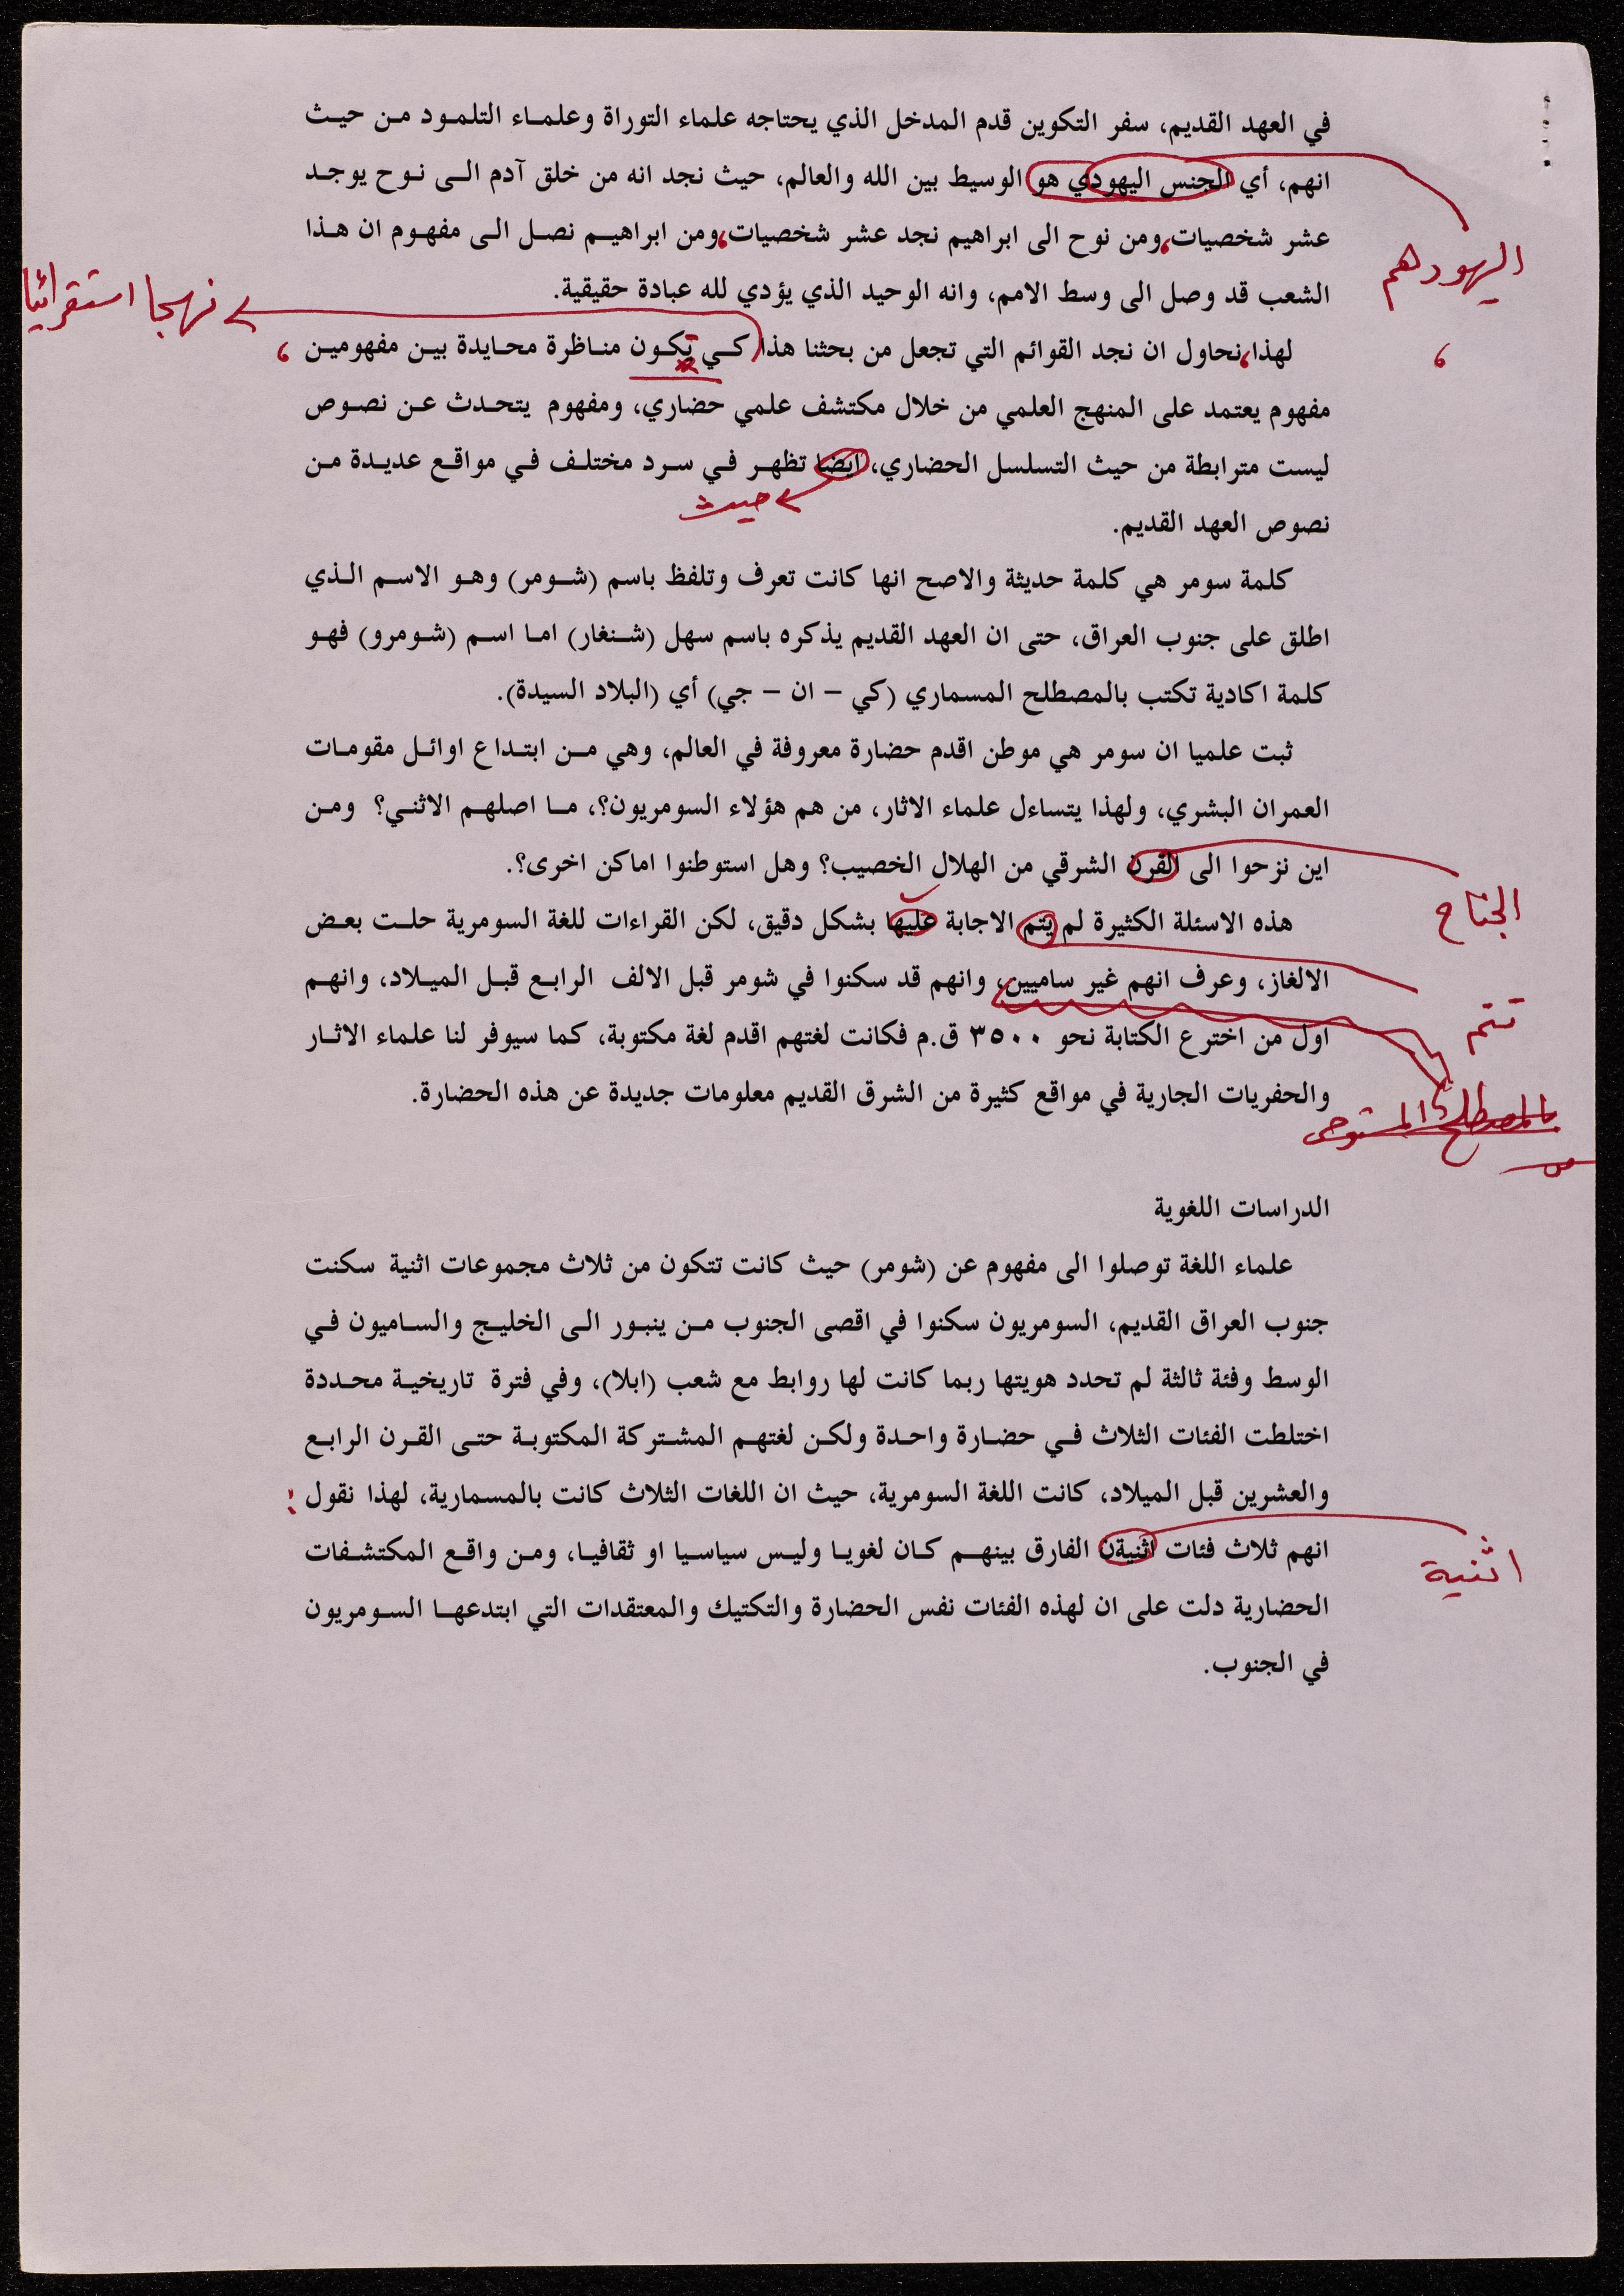 في العهد القديم، سفر التكوين قدم المدخل الذي يحتاجه علماء التوراة وعلماء التلمود من حيث
انهم، أي الجنس اليهودي هو الوسيط بين الله والعالم، حيث نجد انه من خلق آدم الى نوح يوجد
عشر شخصيات، ومن نوح الى ابراهيم نجد عشر شخصيات، ومن ابراهيم نصل الى مفهوم ان هذا
اليهود هم
الشعب قد وصل الى وسط الامم، وانه الوحيد الذي يؤدي لله عبادة حقيقية.
نهجا استقرائيا
لهذا، نحاول ان نجد القوائم التي تجعل من بحثنا هذا كي يكون مناظرة محايدة بين مفهومين،
مفهوم يعتمد على المنهج العلمي من خلال مكتشف علمي حضاري، ومفهوم يتحدث عن نصوص
ليست مترابطة من حيث التسلسل الحضاري، ايضا تظهر في سرد مختلف في مواقع عديدة من
حيث
نصوص العهد القديم.
كلمة سومر هي كلمة حديثة والاصح انها كانت تعرف وتلفظ باسم (شومر) وهو الاسم الذي
اطلق على جنوب العراق، حتى ان العهد القديم يذكره باسم سهل (شنغار) اما اسم (شومرو) فهو
كلمة اكادية تكتب بالمصطلح المسماري (كي – ان – جي) أي (البلاد السيدة).
ثبت علميا ان سومر هي موطن اقدم حضارة معروفة في العالم، وهي من ابتداع اوائل مقومات
العمران البشري، ولهذا يتساءل علماء الاثار، من هم هؤلاء السومريون؟، ما اصلهم الاثني؟ ومن
اين نزحوا الى القرن الشرقي من الهلال الخصيب؟ وهل استوطنوا اماكن اخرى؟.
الجناح
هذه الاسئلة الكثيرة لم يتم الاجابة عليها بشكل دقيق، لكن القراءات للغة السومرية حلت بعض
الالغاز، وعرف انهم غير ساميين، وانهم قد سكنوا في شومر قبل الالف الرابع قبل الميلاد، وانهم
تتم
اول من اخترع الكتابة نحو ٣٥٠٠ ق.م فكانت لغتهم اقدم لغة مكتوبة، كما سيوفر لنا علماء الاثار
والحفريات الجارية في مواقع كثيرة من الشرق القديم معلومات جديدة عن هذه الحضارة.
بالمصطلح
من
الدراسات اللغوية
علماء اللغة توصلوا الى مفهوم عن (شومر) حيث كانت تتكون من ثلاث مجموعات اثنية سكنت
جنوب العراق القديم، السومريون سكنوا في اقصى الجنوب من ينبور الى الخليج والساميون في
الوسط وفئة ثالثة لم تحدد هويتها ربما كانت لها روابط مع شعب (ابلا)، وفي فترة تاريخية محددة
اختلطت الفئات الثلاث في حضارة واحدة ولكن لغتهم المشتركة المكتوبة حتى القرن الرابع
والعشرين قبل الميلاد، كانت اللغة السومرية، حيث ان اللغات الثلاث كانت بالمسمارية، لهذا نقول :
انهم ثلاث فئات اثنيةن الفارق بينهم كان لغويا وليس سياسيا او ثقافيا، ومن واقع المكتشفات
اثنية
الحضارية دلت على ان لهذه الفئات نفس الحضارة والتكتيك والمعتقدات التي ابتدعها السومريون
في الجنوب.